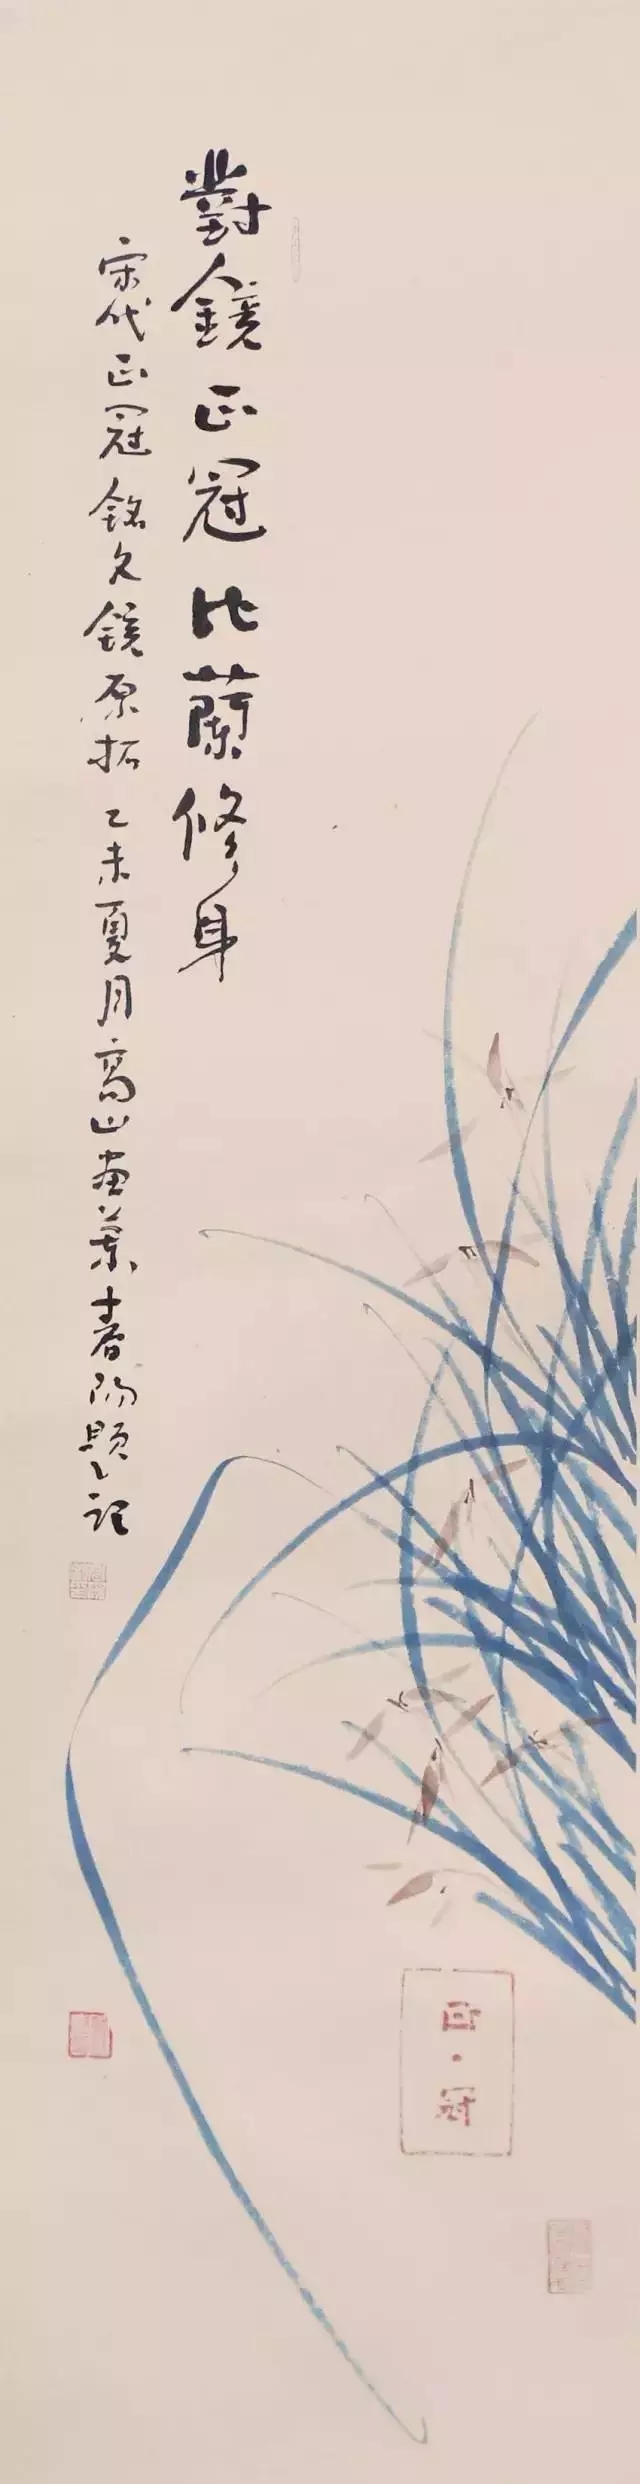 對鏡正冠比蘭修身
宋代正冠銘文鏡原拓乙未夏月高山畫蘭春陽題記
正·冠